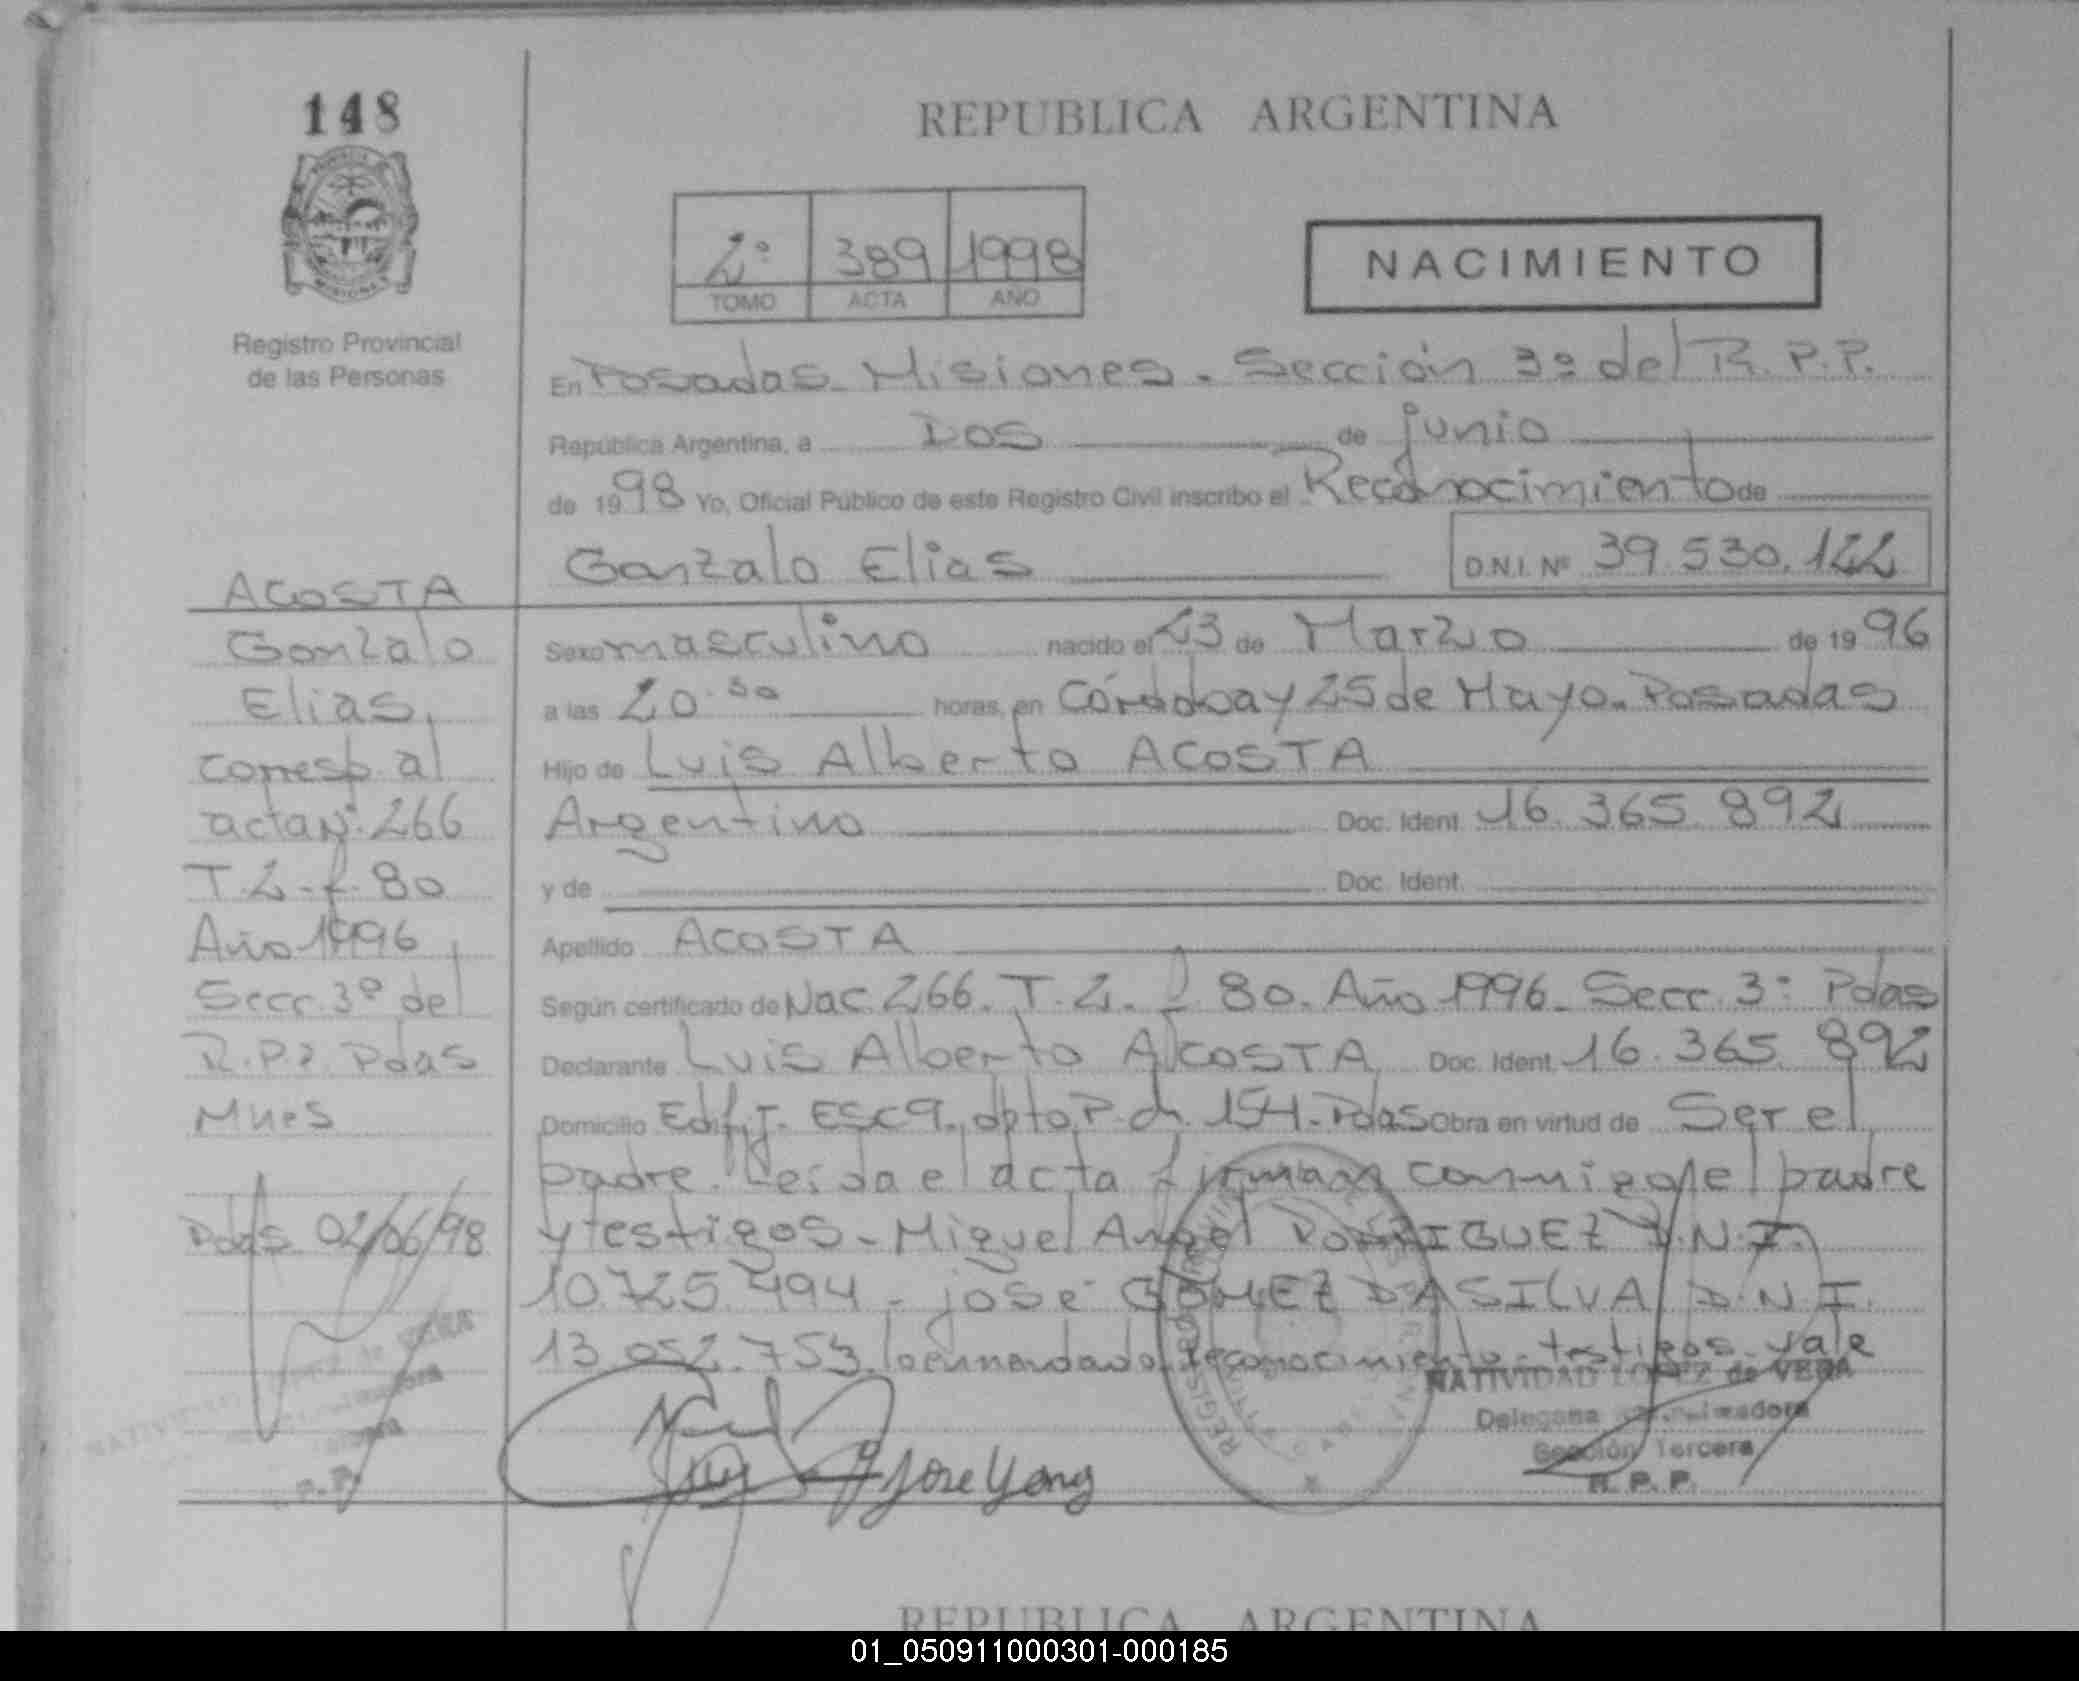 148
REPUBLICA ARGENTINA
2º 389 1998
TOMO ACTA AÑO
NACIMIENTO
Registro Provincial
de las Personas
En Posadas Misiones. Sección 3º del R.P.P.
República Argentina, a Dos de junio
de 1998 Yo, Oficial Público de este Registro Civil inscribo el Reconocimiento de
Gonzalo Elias D.N.I. Nº 39.530.122
ACOSTA
Gonzalo
Elias,
corresp. al
acta Nº 266
T. 2 - f. 80
Año 1996,
Secc. 3º del
R.P.P. Pdas
Mnes
Pdas 02/06/98
Sexo masculino nacido el 23 de Marzo de 1996
a las 20.30 horas, en Córdoba y 25 de Mayo. Posadas
Hijo de Luis Alberto ACOSTA
Argentino Doc. Ident. 16.365.892
y de Doc. Ident.
Apellido ACOSTA
Según certificado de Nac. 266. T. 2. f. 80. Año 1996. Secc. 3º Pdas
Declarante Luis Alberto ACOSTA Doc. Ident. 16.365.892
Domicilio Edif. J. ESC 9. dpto P. ch. 154. Pdas Obra en virtud de Ser el
padre. Leida el acta firman conmigo el padre
y testigos - Miguel Angel RODRIGUEZ D.N.I.
10.725.494 - josé GOMEZ DASILVA D.N.I.
13.052.753. lo enmendado reconocimiento - testigos - vale
NATIVIDAD LOPEZ de VERA
Delegada
Sección Tercera
R.P.P.
Jose
REPUBLICA ARGENTINA
01_050911000301-000185